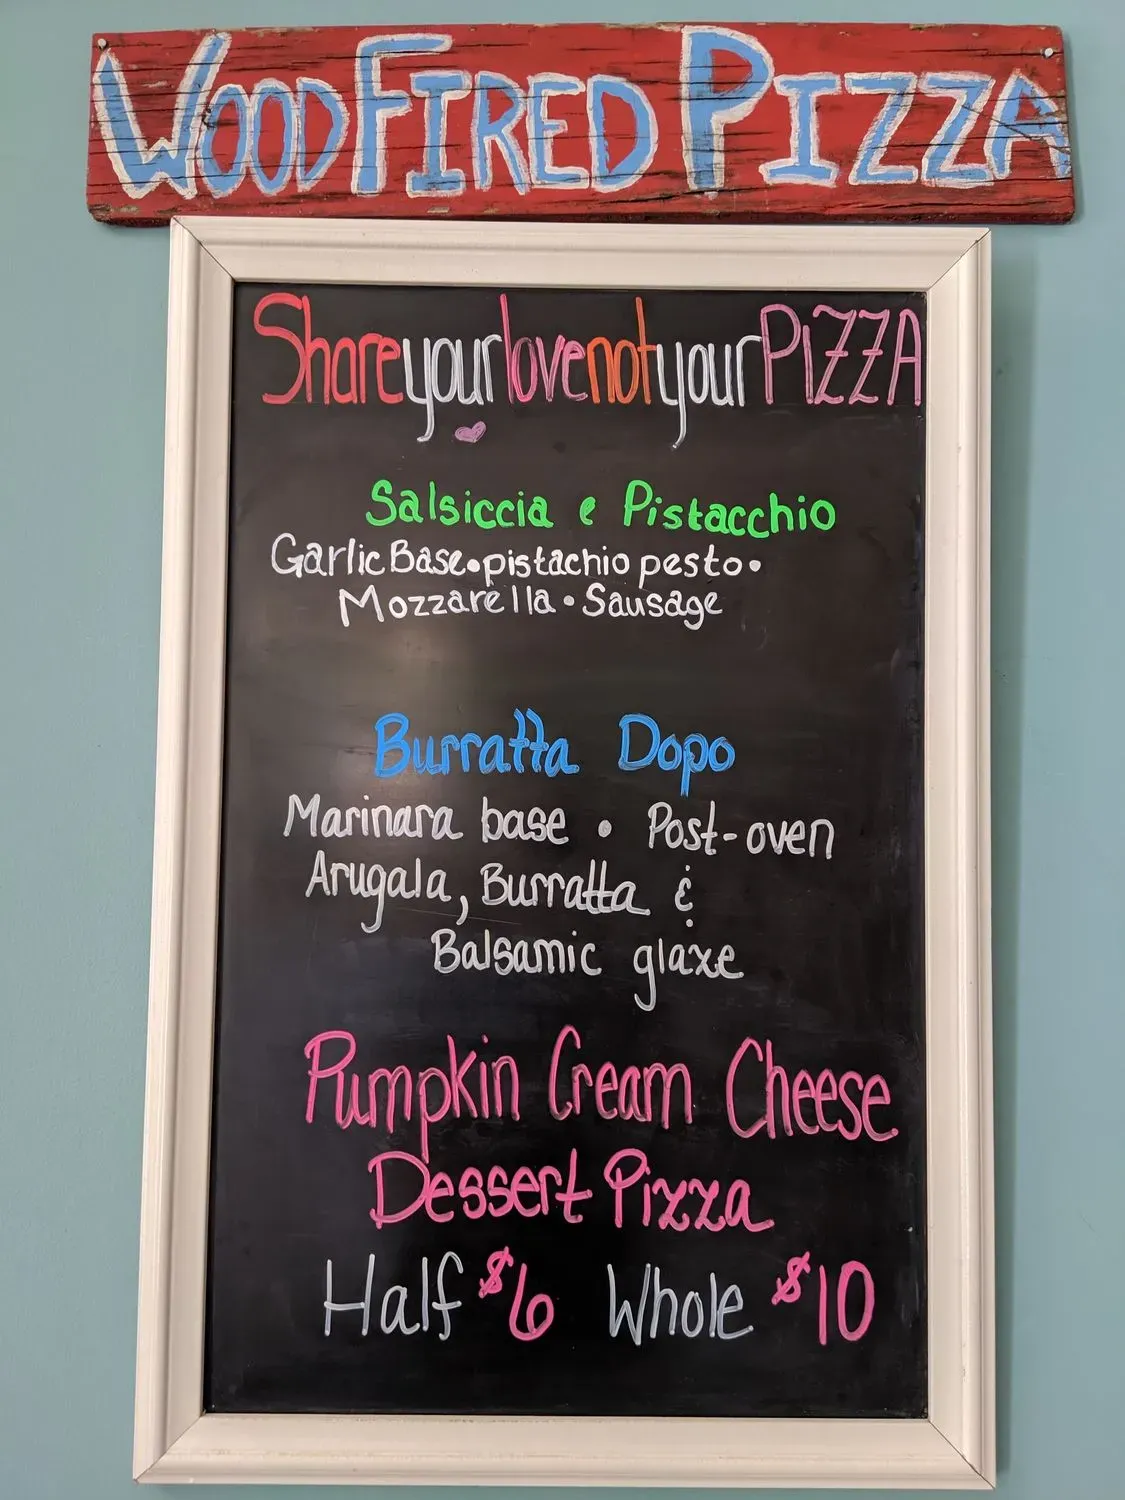 WOOD FIRED PIZZA
Share your love not your PIZZA
Salsiccia e Pistacchio
Garlic Base • pistachio pesto •
Mozzarella • Sausage
Burratta Dopo
Marinara base • Post-oven
Arugala, Burratta &
Balsamic glaxe
Pumpkin Cream Cheese
Dessert Pizza
Half $6 Whole $10